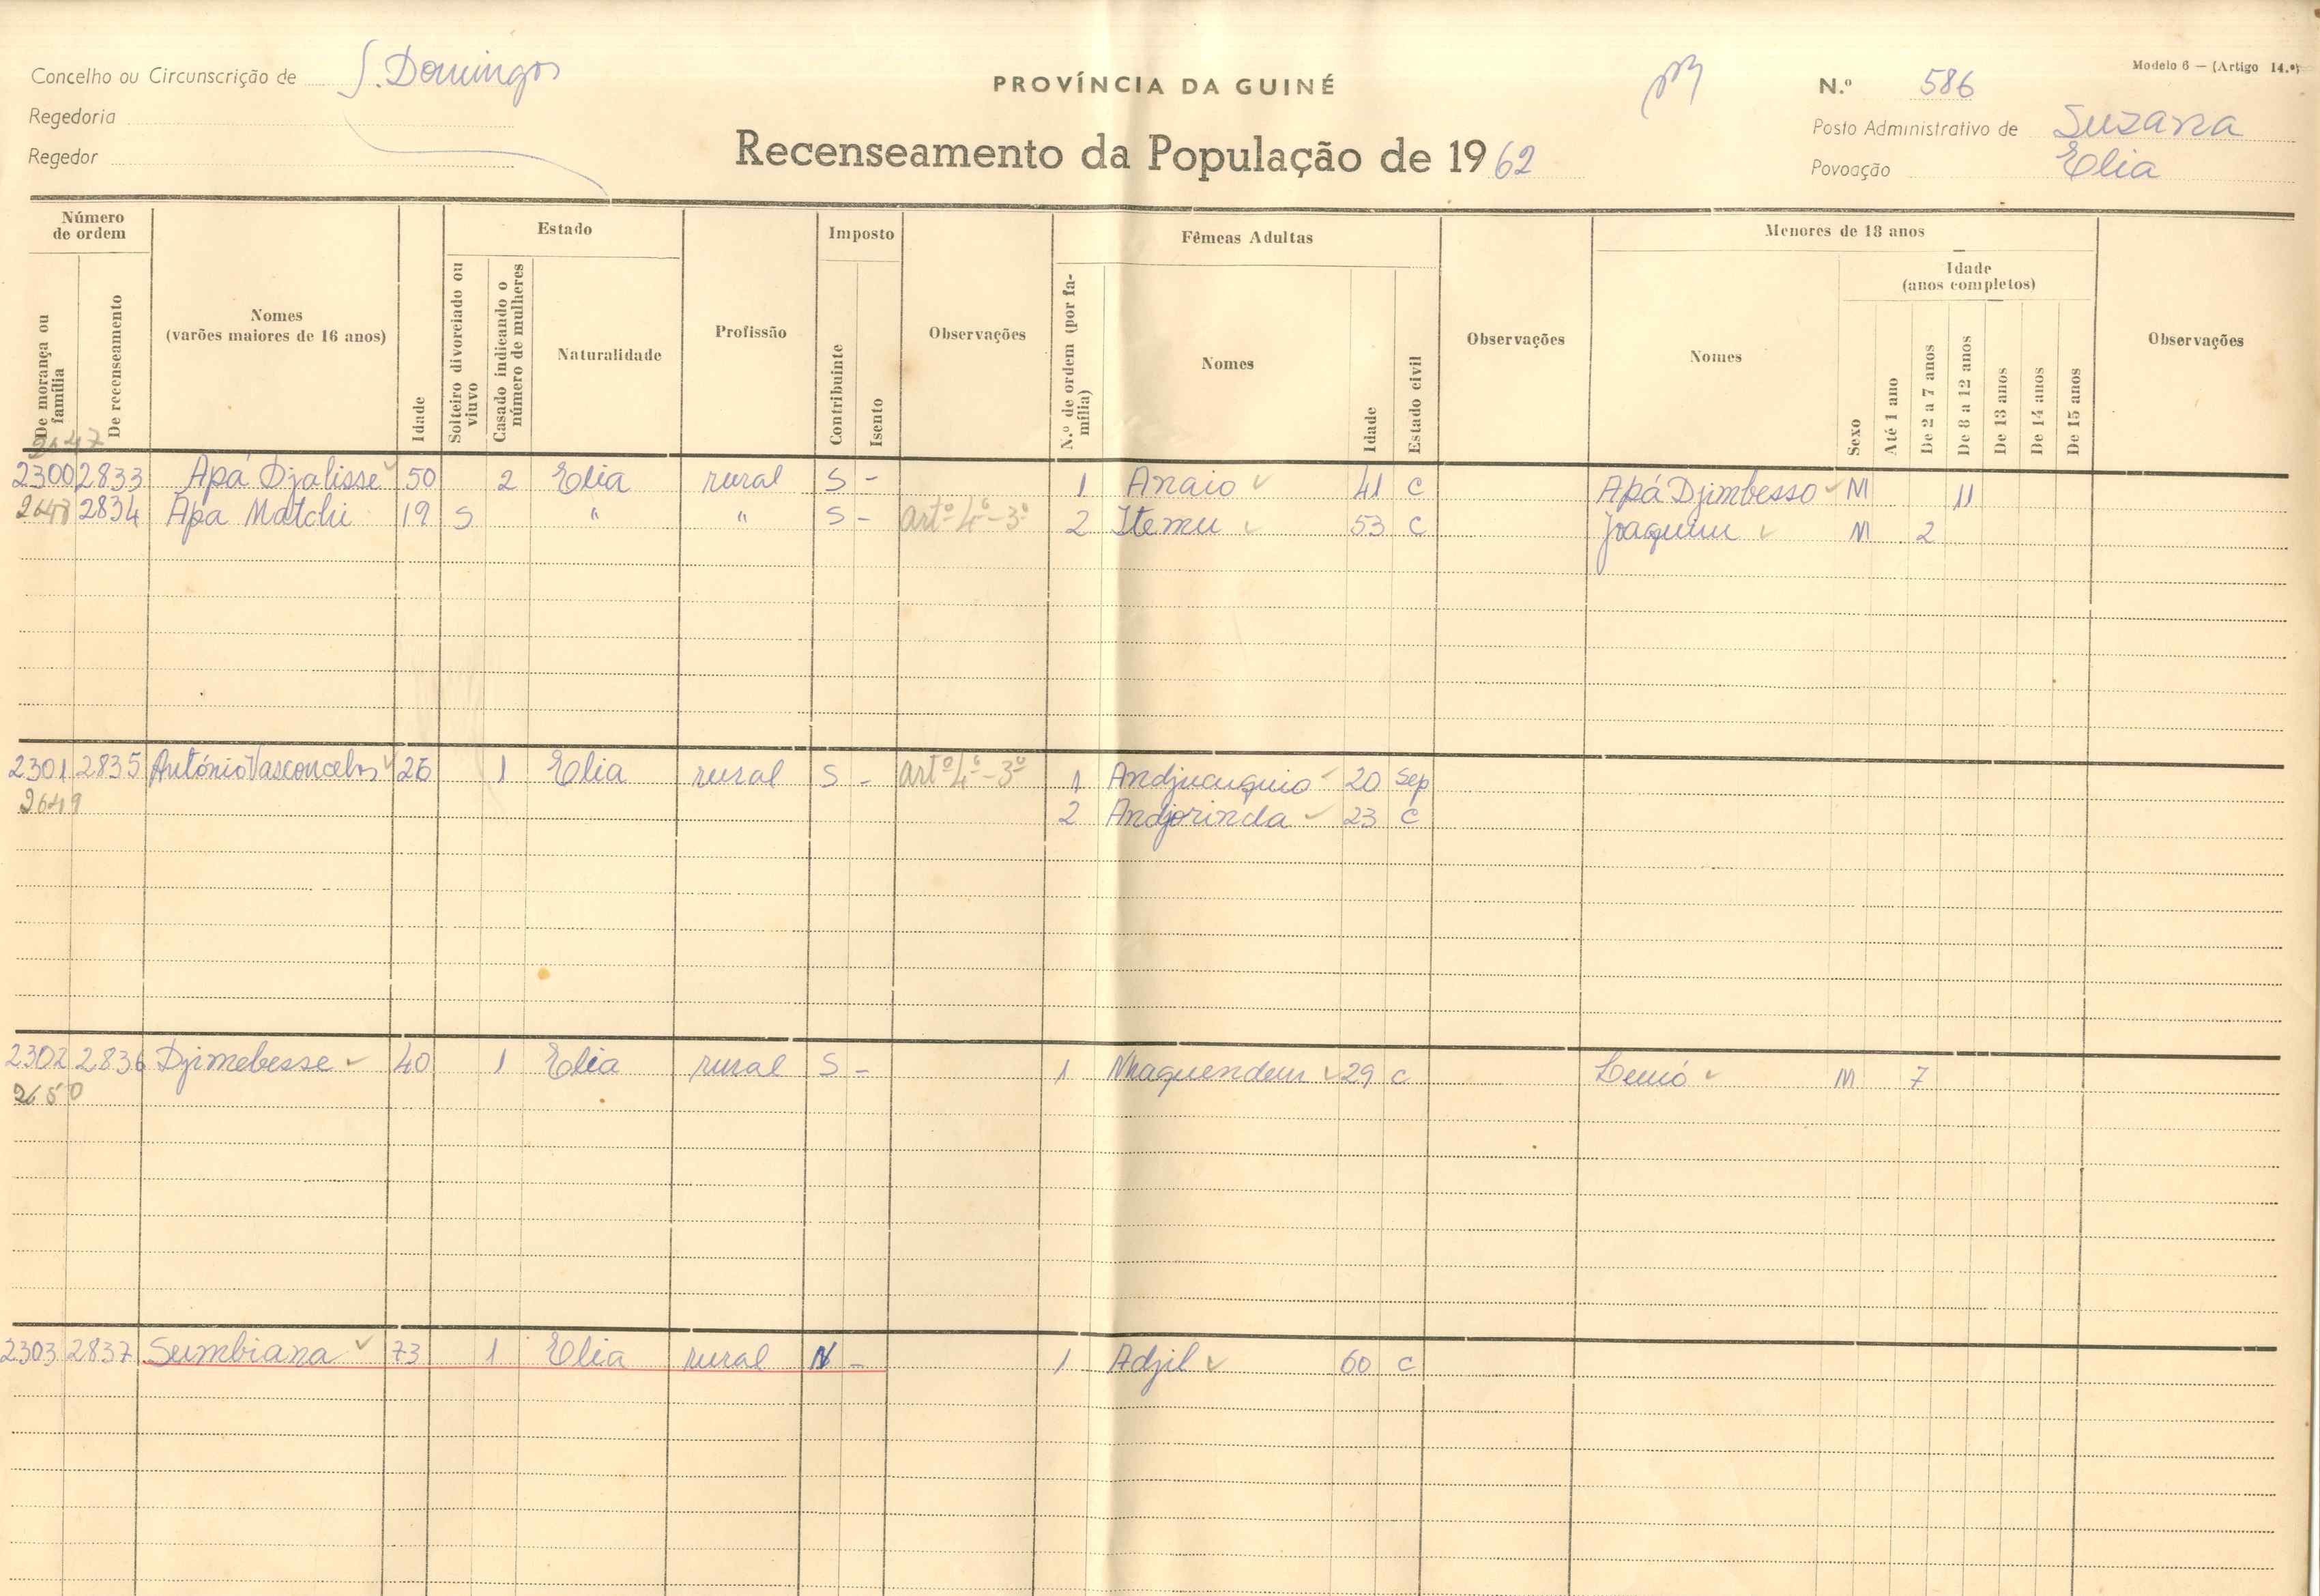 Concelho ou Circunscrição de S. Domingos
Regedoria
Regedor
PROVÍNCIA DA GUINÉ
Recenseamento da População de 1962
Modelo 6 — (Artigo 14.º)
N.º 586
Posto Administrativo de Suzana
Povoação Elia
Número de ordem
De morança ou família
De recenseamento
Nomes (varões maiores de 16 anos)
Idade
Estado
Solteiro divorciado ou viuvo
Casado indicando o número de mulheres
Naturalidade
Profissão
Imposto
Contribuinte
Isento
Observações
Fêmeas Adultas
N.º de ordem (por família)
Nomes
Idade
Estado civil
Observações
Menores de 18 anos
Nomes
Sexo
Idade (anos completos)
Até 1 ano
De 2 a 7 anos
De 8 a 12 anos
De 13 anos
De 14 anos
De 15 anos
Observações
2647
2300 2833 Apá Djalisse 50 2 Elia rural S - 1 Anaio 41 C Apá Djimbesso M 11
2648 2834 Apa Matchi 19 S " " S - artº 4º - 3º 2 Itemu 53 C Joaquim M 2
2301 2835 António Vasconcelos 26 1 Elia rural S - artº 4º - 3º 1 20 Sep
2649 2 Andjorinda 23 C
2302 2836 Djimebesse 40 1 Elia rural S - 1 Nhaquendem 29 C M 7
2650
2303 2837 Sumbiana 73 1 Elia rural N - 1 Adjil 60 C